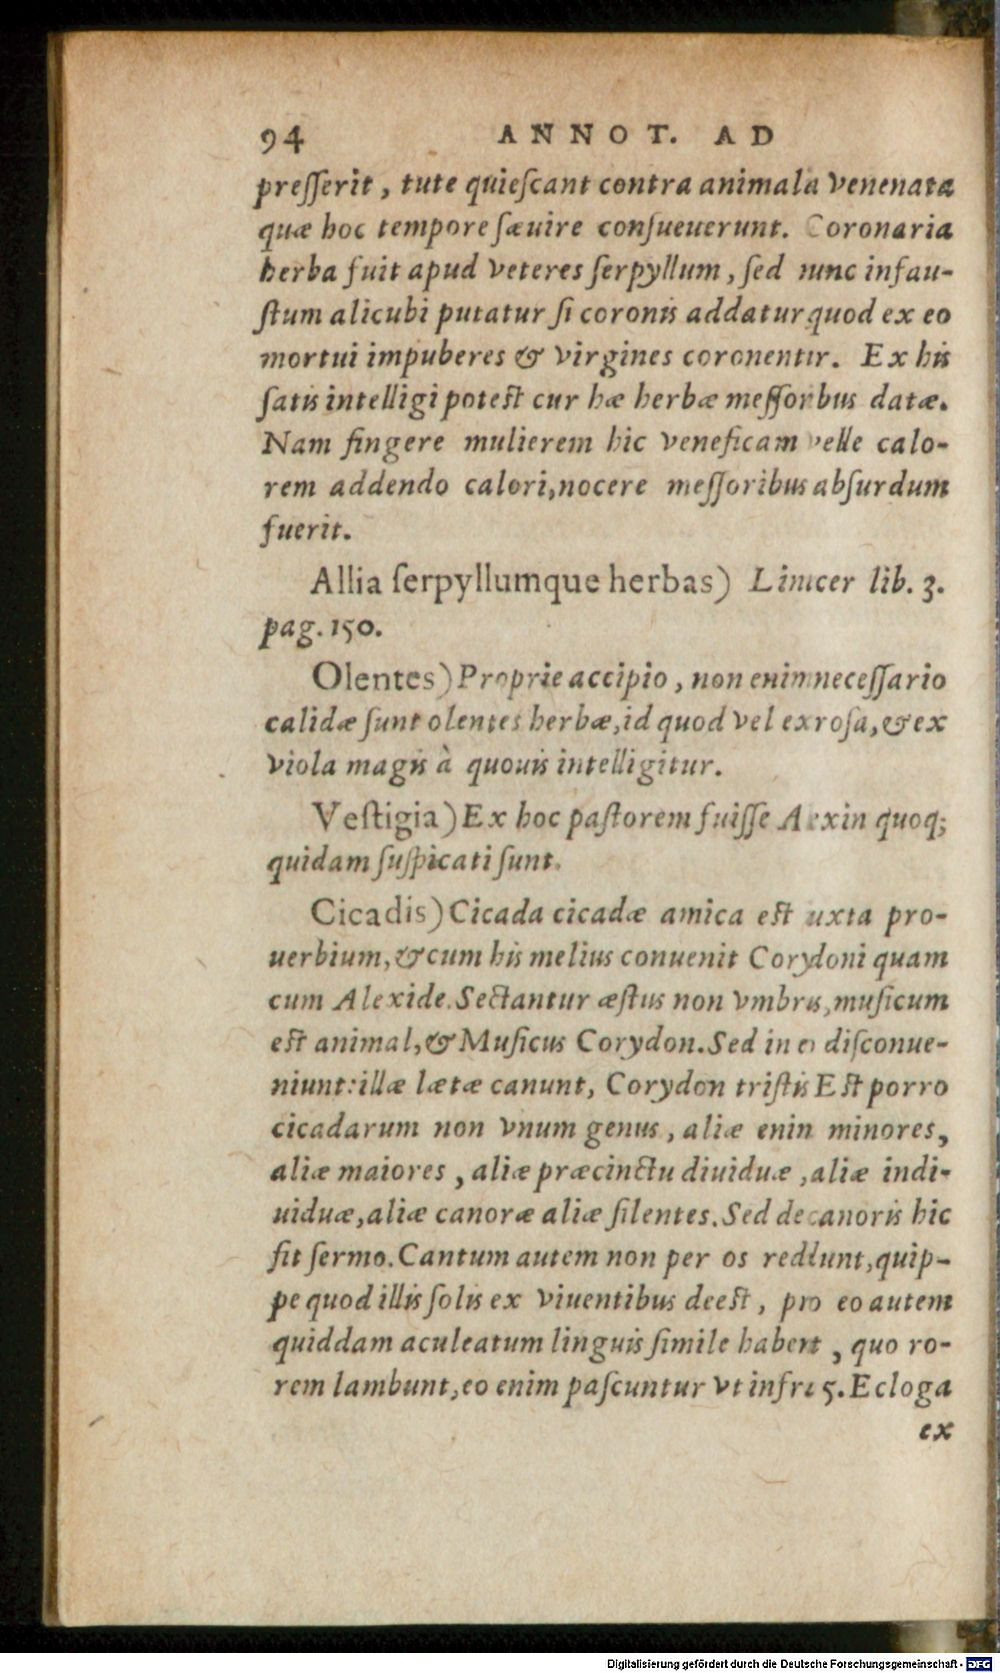 94 ANNOT. AD
preſſerit, tute quieſcant contra animalia venenata
quæ hoc tempore ſæuire conſueuerunt. Coronaria
herba fuit apud veteres ſerpyllum, ſed nunc infau-
ſtum alicubi putatur ſi coronis addatur quod ex eo
mortui impuberes & virgines coronentur. Ex his
ſatis intelligi poteſt cur hæ herbæ meſſoribus datæ.
Nam fingere mulierem hic veneficam velle calo-
rem addendo calori, nocere meſſoribus abſurdum
fuerit.
Allia ſerpyllumque herbas) Liniicer lib. 3.
pag. 150.
Olentes) Proprie accipio, non enim neceſſario
calidæ ſunt olentes herbæ, id quod vel ex roſa, & ex
viola magis à quouis intelligitur.
Veſtigia) Ex hoc paſtorem fuiſſe Alexin quoq;
quidam ſuſpicati ſunt.
Cicadis) Cicada cicadæ amica eſt iuxta pro-
uerbium, & cum his melius conuenit Corydoni quam
cum Alexide. Sectantur æſtus non vmbras, muſicum
eſt animal, & Muſicus Corydon. Sed in eo diſconue-
niunt: illæ lætæ canunt, Corydon triſtis Eſt porro
cicadarum non vnum genus, aliæ enim minores,
aliæ maiores, aliæ præcinctu diuiduæ, aliæ indi-
uiduæ, aliæ canoræ aliæ ſilentes. Sed de canoris hic
fit ſermo. Cantum autem non per os reddunt, quip-
pe quod illis ſolis ex viuentibus deeſt, pro eo autem
quiddam aculeatum linguis ſimile habent, quo ro-
rem lambunt, eo enim paſcuntur vt infra 5. Ecloga
ex
Digitalisierung gefördert durch die Deutsche Forschungsgemeinschaft - DFG